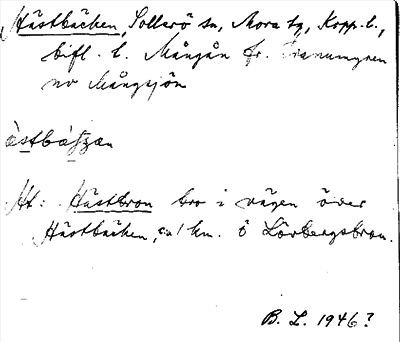 Hästbäcken, Sollerö sn, Mora tg, Kopp. l.,
bifl. t. Mångån fr. Tranumyren
nv Mångsjön
Ht: Hästbron bro i vägen över
Hästbäcken, ca 1 km. ö Lövbergsbron.
B. L. 1946?